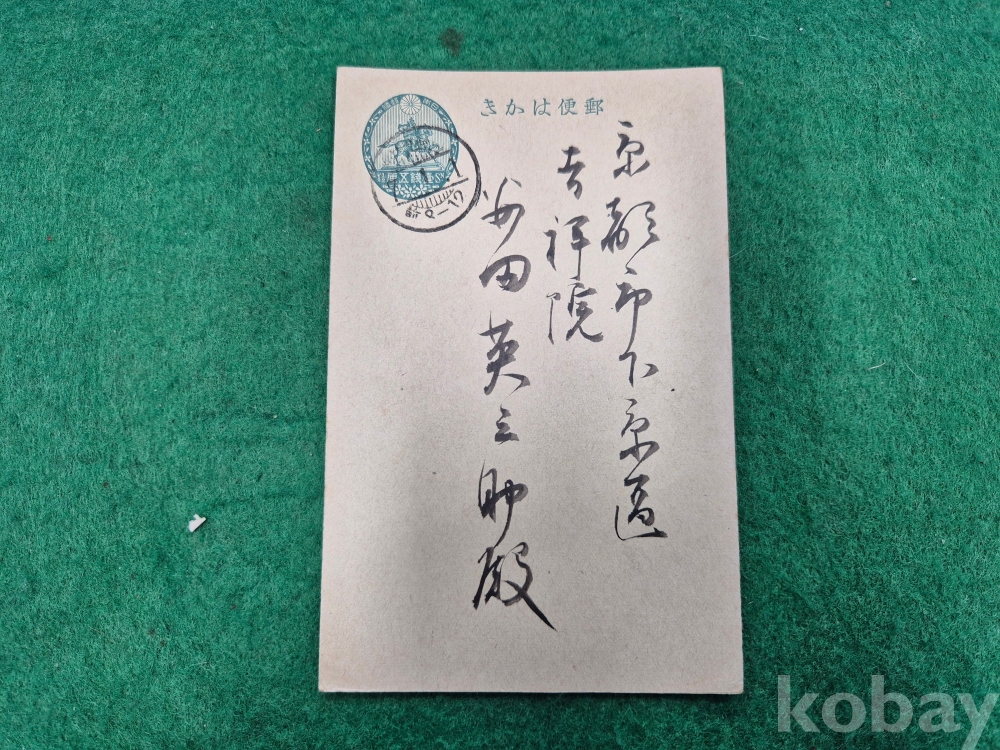 郵便はかき
京都市下京區
吉祥院
安田英三助殿
kobay